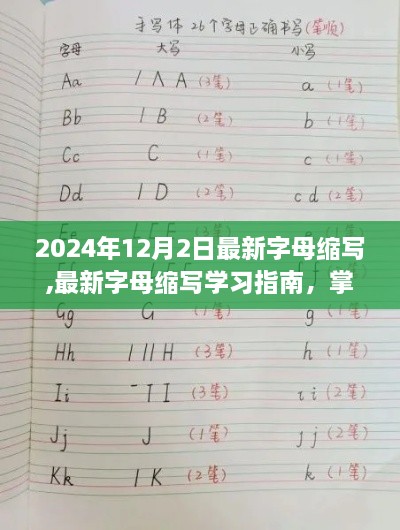 手写体 26个字母正确书写(笔顺)
字母 大写 小写
Aa / Λ A (3笔) a (1笔)
Bb l B (2笔) b (1笔)
Cc C (1笔) c (1笔)
Dd l D (2笔) c d (2笔)
2024年12月2日最新字母缩写
,最新字母缩写学习指南，掌
Gg G (1笔) g (1笔)
Hh l ll H (3笔) h (1笔)
Ii - T I (3笔) ι i (2笔)
Jj J (1笔) ȷ j (2笔)
Kk l K (2笔) k (1笔)